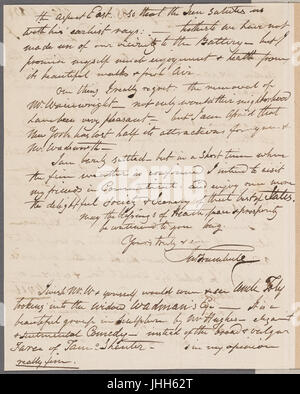 the aspect East. so that the Sun salutes us
with his earliest rays: - hitherto we have not
made use of our vicinity to the Battery - but I
promise myself much enjoyment & health from
its beautiful walks & fresh Air.
Our Misses greatly regret the removal of
Mr. Wainwright - not only would their neighborhood
have been very pleasant - but I am afraid that
New York has lost half its attractions for you &
Mr. Wadsworth -
I am barely settled - but in a short time when
the fine weather I intend to visit
my friends in Connecticut and enjoy once more
the delightful Society & Scenery of that best of States.
May the blessings of Heaven peace & prosperity
be continued to you long
Yours truly &c
Jno Trumbull
I wish Mr. W & yourself would come & see Uncle Toby
looking into the Widow Wadman's Eye - It is a
beautiful group in Sculpture by Mr Hughes - elegant
& Sentimental Comedy - instead of the broad & vulgar
Farce of Tam O'Shanter - is in my opinion
really fine.
alamy
Image ID: JHH62T
www.alamy.com